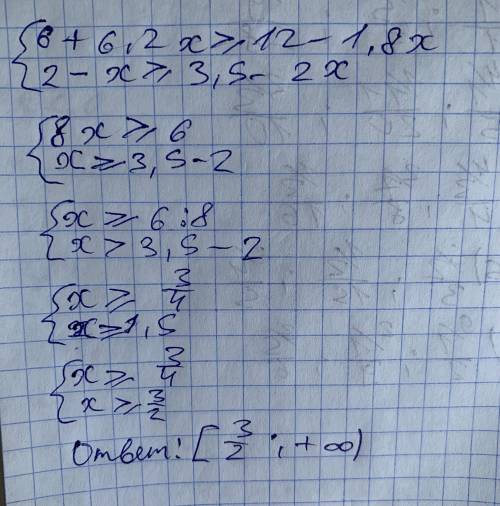 6 + 6,2x ⩾ 12 - 1,8x
2 - x ⩾ 3,5 - 2x
8x ⩾ 6
x ⩾ 3,5 - 2
x ⩾ 6 : 8
x > 3,5 - 2
x ⩾ 3/4
x ⩾ 1,5
x ⩾ 3/4
x ⩾ 3/2
Ответ: [3/2 ; + ∞)